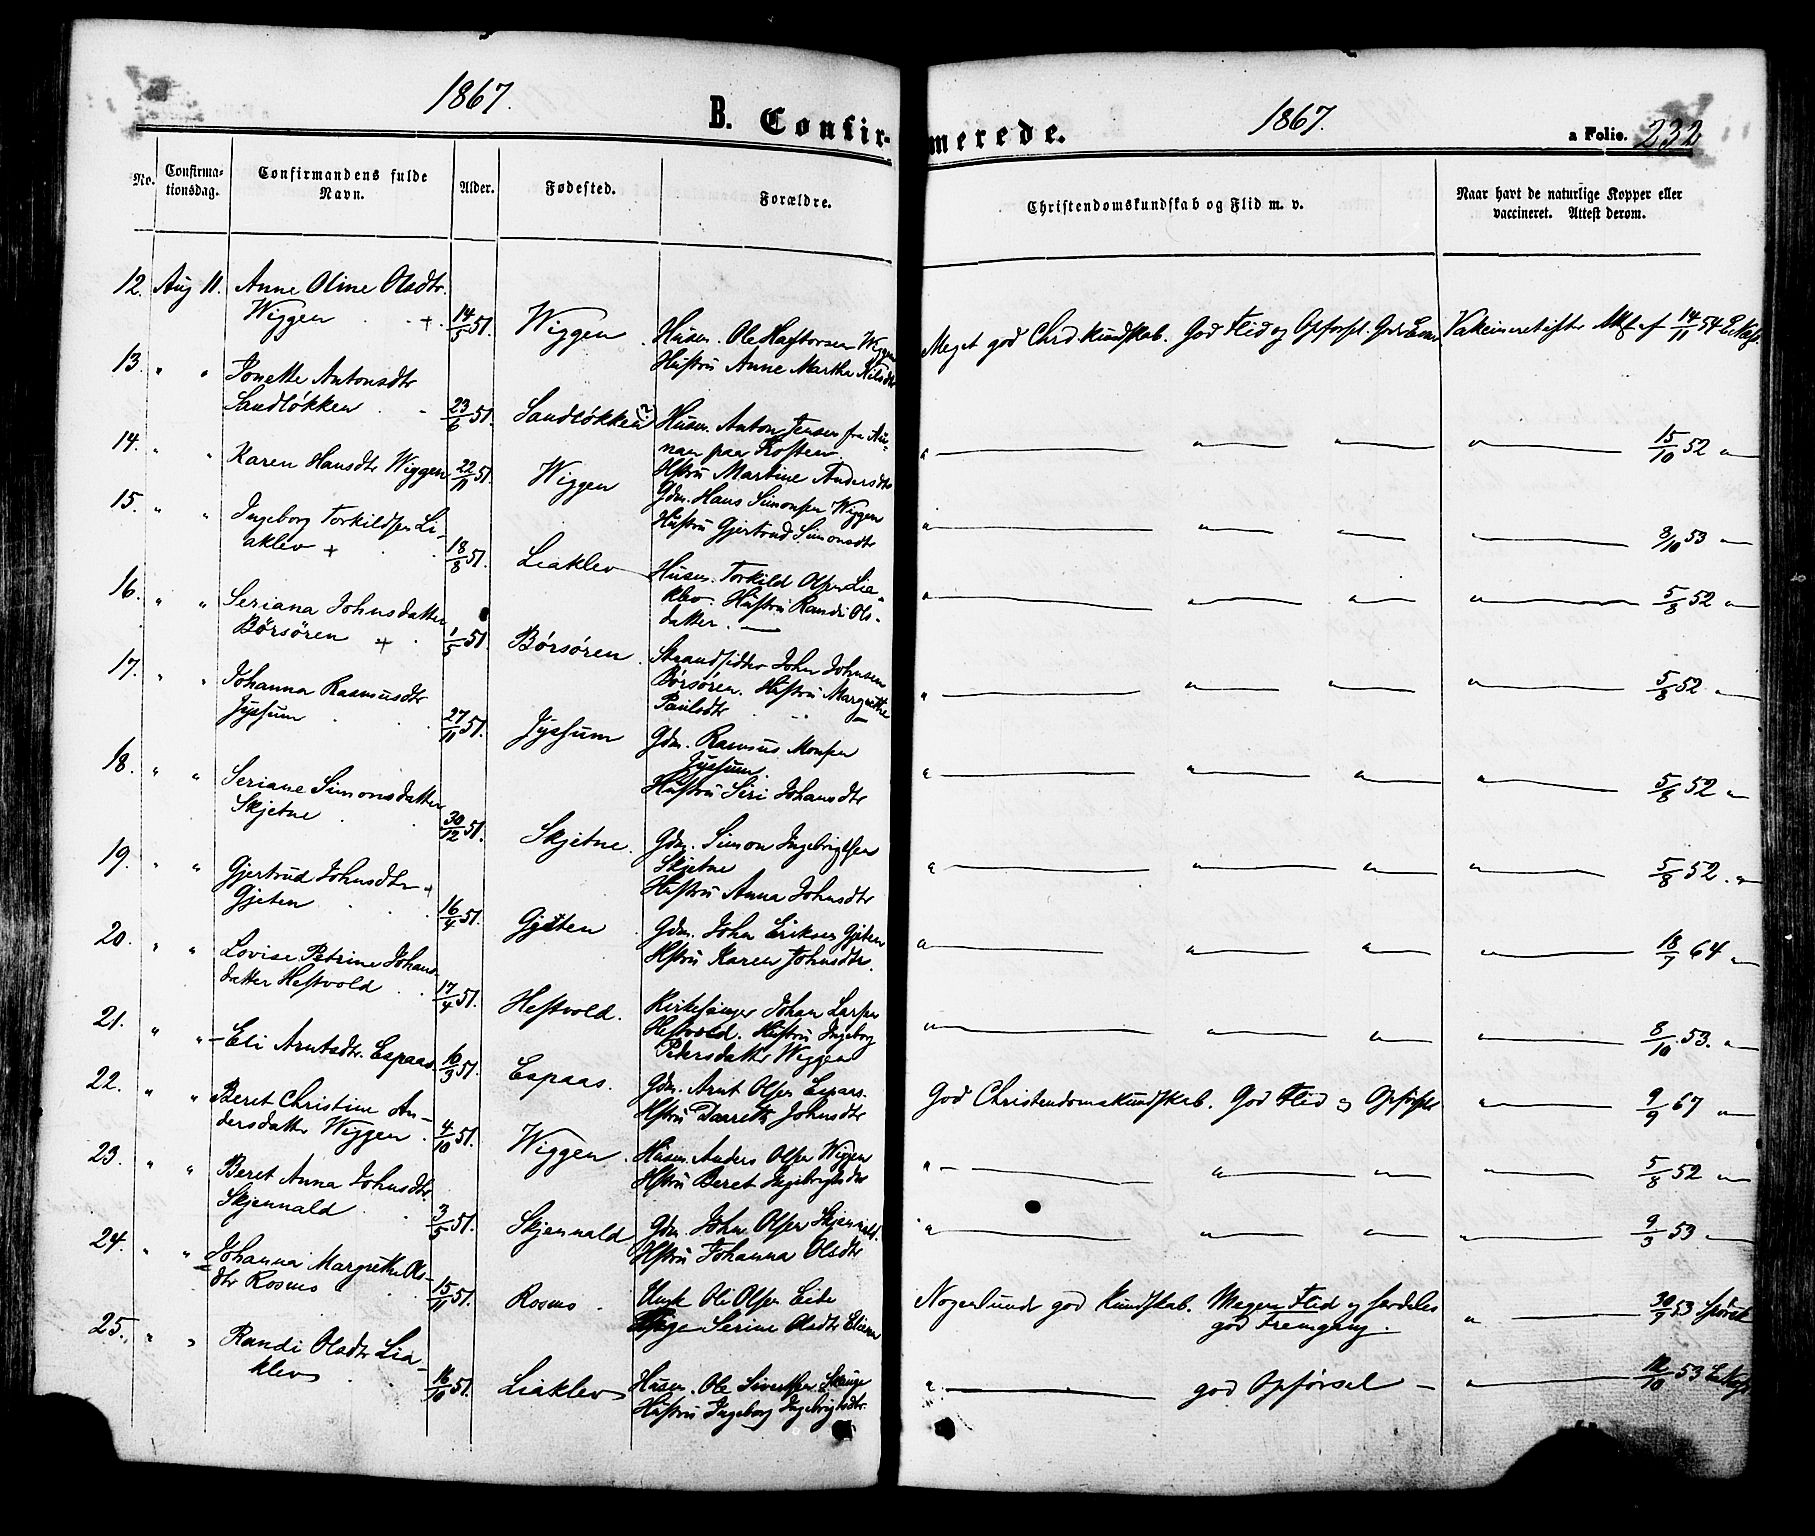 1867.
B. Confir-
No.
Confirma-
tionsdag.
Confirmandens fulde
Navn.
Alder.
Fødested.
Forældre.
12. Aug 11. Anne Oline Olsdtr.
Wiggen +. 14/5 51. Wiggen Husm. Ole Haftorsen Wiggen
Hustru Anne Martha Nilsdtr
13. " " Jonette Antonsdtr
Sandløkken 23/6 51. Sandløkken (?) Husm. Anton Jensen fra Au-
nan paa
Hstru Martine Andersdtr
14. " " Karen Hansdtr Wiggen 22/11 51. Wiggen
Gdm. Hans Simonsen Wiggen
Hustru Gjertrud Simonsdtr
15. " " Ingeborg Torkildsen Li-
aklev + 18/8 51. Liaklev Husm. Torkild Olsen Lia-
klev. Hustru Randi Ols-
datter.
16. " " Seriana Johnsdatter
Børsøren + 1/5 51. Børsøren. Strandsidder John Johnsen
Børsøren. Hustru Margrethe
Paulsdtr
17. " " Johanna Rasmusdtr
Jyssum 27/11 51. Jyssum Gdm. Rasmus Monsen
Jyssum.
Hustru Siri Johansdtr
18. " " Seriane Simonsdatter
Skjetne 30/12 51. Skjetne. Gdm. Simon Ingebrigtsen
Skjetne
Hustru Anna Johnsdtr
19. " " Gjertrud Johnsdtr +
Gjeten 16/4 51. Gjeten Gdm. John Eriksen Gjeten
Hstru Karen Johnsdtr.
20. " " Lovise Petrine Johans-
datter Hestvold 17/4 51. Hestvold. Kirkesanger Johan Larsen
Hestvold. Hustru Ingeborg
Petersdatter Wiggen
21. " " Eli Arntsdtr. Espaas 10/3 51. Espaas. Gdm. Arnt Olsen Espaas.
Hstru Darreth Johnsdtr
22. " " Beret Christine An-
dersdatter Wiggen 4/10 51. Wiggen. Husm. Anders Olsen Wiggen
Hstru Beret Ingebrigtsdtr
23. " " Beret Anna Johnsdtr
Skjenvald 3/5 51. Skjenvald Gdm. John Olsen Skjenvald.
Hstru Johanna Olsdtr
24. " " Johanna Margrethe Ols-
dtr Rosmo 15/11 51. Rosmo. Ungk Ole Olsen Eide
Pige Serine Olsdtr
25. " " Randi Olsdtr Lia-
klev 16/10 51. Liaklev Husm. Ole Sivertsen Skauge
Hustru Ingeborg Ingebrigtsdtr.
merede.
1867.
a Folio. 232
Christendomskundskab og Flid m. v.
Naar havt de naturlige Kopper eller
vaccineret. Attest derom.
Meget god Chrd.kundskab. God Flid og Opførsl. Vakcineret efter Att af 14/11 54
" " " " 15/10 52 "
" " " " 8/10 53 "
" " " " 5/8 52 "
" " " " 5/8 52 "
" " " " 5/8 52 "
" " " " 5/8 52 "
" " " " 18/7 64 "
" " " " 8/10 53. "
God Christendomskundskab. God Flid og Opførsel " 9/9 67 "
" " " " 5/8 52 "
" " " " 9/3 53 "
Nogenlunde god Kundskab. Megen Flid og særdeles
god Fremgang. " 30/9 53
" god Opførsel " 12/10 53